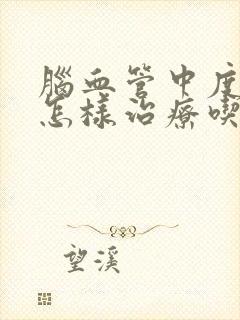 腦血管中度
怎樣治療喫
望溪